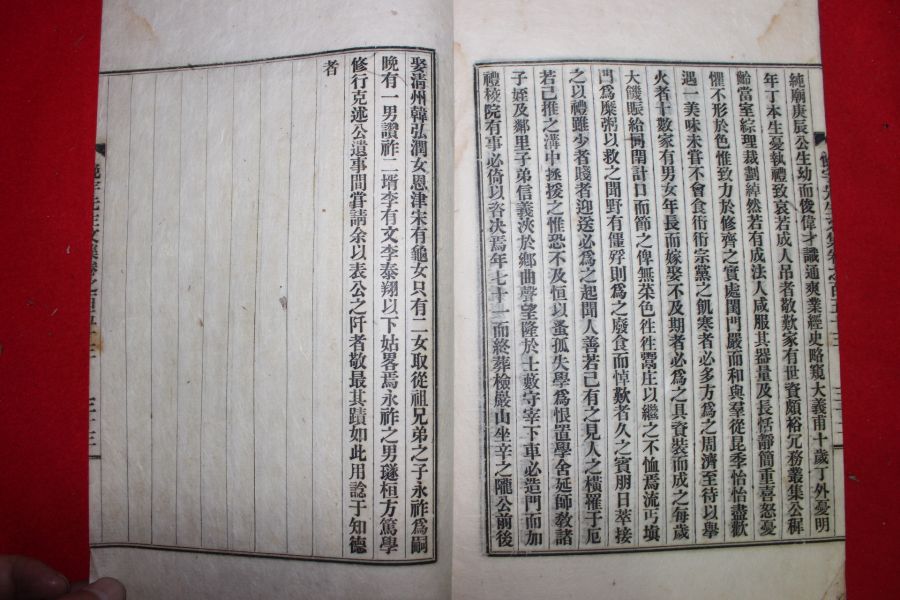 純廟庚辰公生幼而俊偉才識通爽業經史略窺大義甫十歲丁外憂明
年丁本生憂執禮致哀若成人吊者敬歎家有世資頗裕冗務叢集公穉
齡當室綜理裁劃綽然若有成法人咸服其器量及長恬靜簡重喜怒憂
懼不形於色惟致力於修齊之實處閨門嚴而和與羣從昆季怡怡盡歡
遇一美味未甞不會食衎衎宗黨之飢寒者必多方為之周濟至待以擧
火者十數家有男女年長而嫁娶不及期者必為之具資裝而成之每歲
大饑賑給同閈計口而節之俾無菜色徃徃鬻庄以繼之不恤焉流丐塡
門為糜粥以救之聞野有僵殍則為之廢食而悼歎者久之賓朋日萃接
之以禮雖少者賤者迎送必為之起聞人善若己有之見人之橫罹于厄
若己推之溝中拯援之惟恐不及恒以蚤孤失學為恨置學舍延師敎諸
子姪及鄰里子弟信義浹於鄕曲聲望隆於士數守宰下車必造門而加
禮校院有事必倚以咨决焉年七十二而終葬檢嚴山坐辛之隴公前後
娶淸州韓弘潤女恩津宋有龜女只有二女取從祖兄弟之子永祚為嗣
晚有一男讚祚二壻李有文李泰翔以下姑畧焉永祚之男璲桓方篤學
修行克述公遺事間甞請余以表公之阡者敬最其蹟如此用諗于知德
者